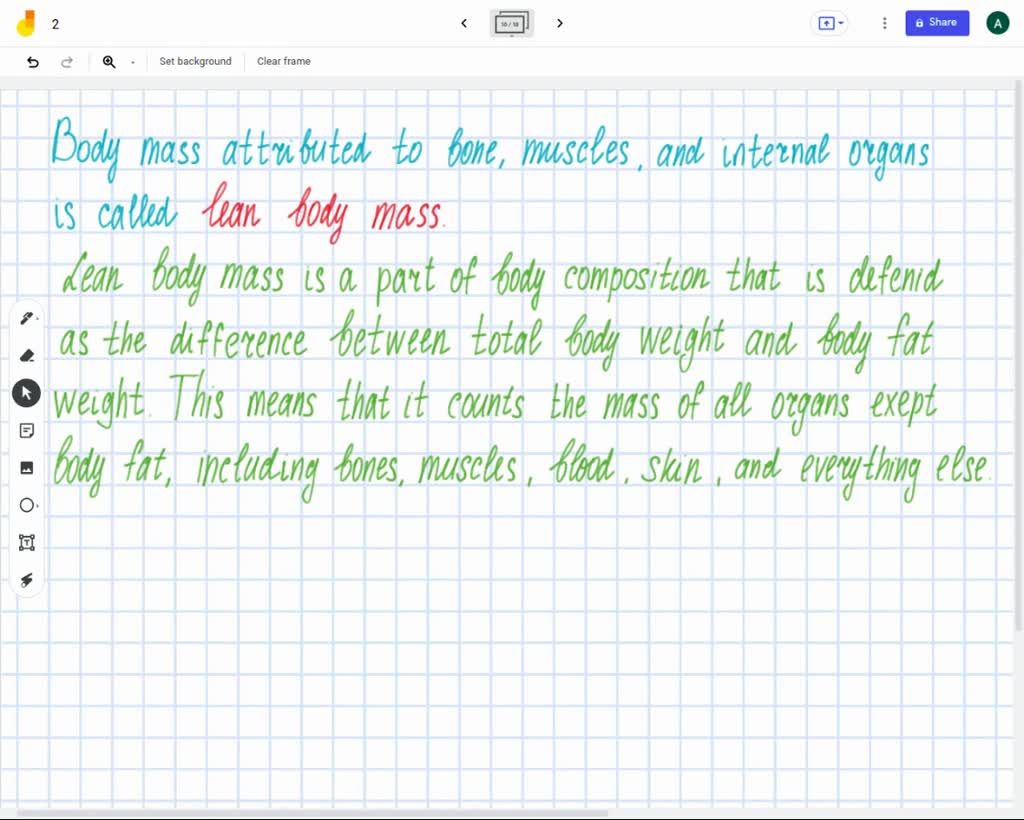 2
10 / 10
Share
A
Set background
Clear frame
Body mass attributed to bone, muscles, and internal organs
is called lean body mass.
Lean body mass is a part of body composition that is defenid
as the difference between total body weight and body fat
weight. This means that it counts the mass of all organs exept
body fat, including bones, muscles, blood, skin, and everything else.